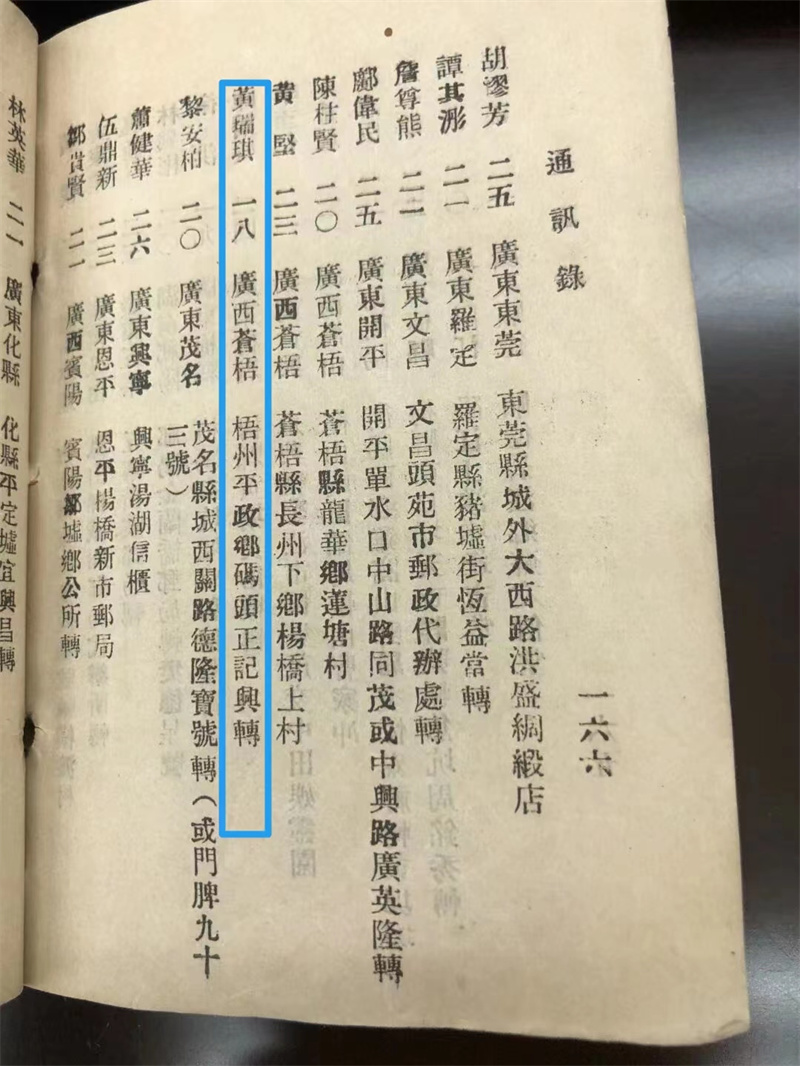 通訊錄
一六六
胡謬芳 二五 廣東東莞 東莞縣城外大西路洪盛綢緞店
譚其澎 二一 廣東羅定 羅定縣豬墟街恆益當轉
詹尊熊 二一 廣東文昌 文昌頭苑市郵政代辦處轉
鄺偉民 二五 廣東開平 開平單水口中山路同茂或中興路廣英隆轉
陳柱賢 二〇 廣西蒼梧 蒼梧縣龍華鄉蓮塘村
黄堅 二三 廣西蒼梧 蒼梧縣長州下鄉楊橋上村
黃瑞琪 一八 廣西蒼梧 梧州平政鄉碼頭正記興轉
黎安柏 二〇 廣東茂名 茂名縣城西關路德隆寶號轉（或門牌九十
三號）
蕭健華 二六 廣東興寧 興寧湯湖信櫃
伍鼎新 二三 廣東恩平 恩平楊橋新市郵局
鄒貴賢 二一 廣西賓陽 賓陽鄒墟鄉公所轉
林英華 二一 廣東化縣 化縣平定墟宜興昌轉